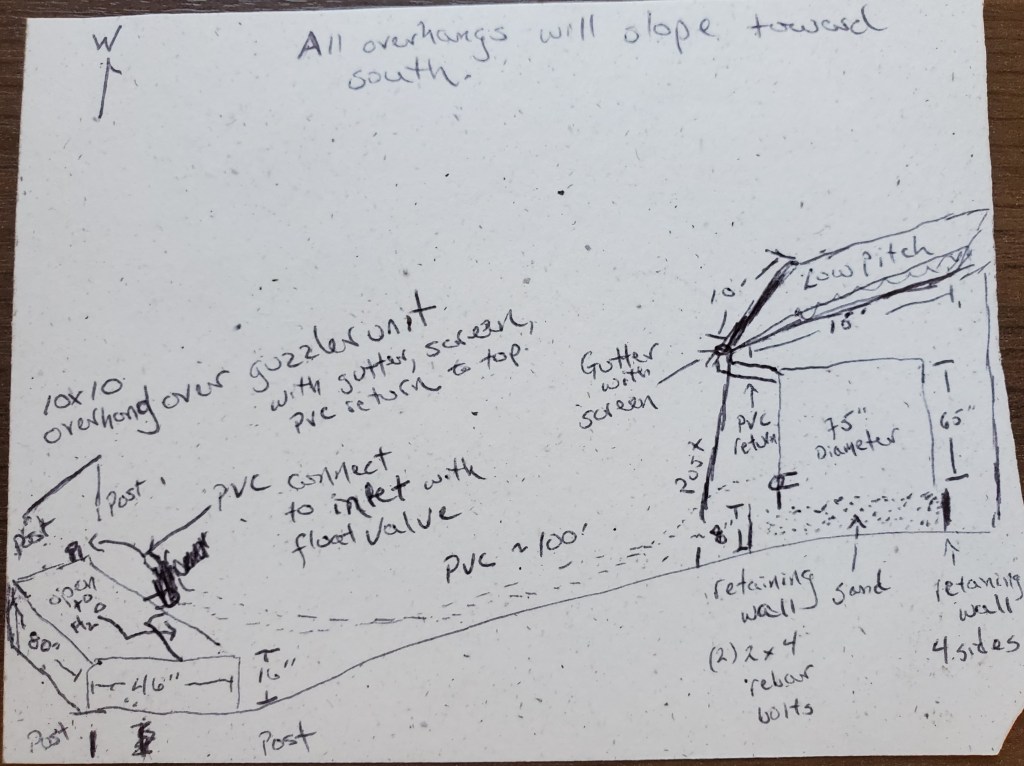 W
All overhangs will slope toward
south.
10x10
overhang over guzzler unit
with gutter, screen,
PVC return to top.
Low Pitch
10'
15'
Gutter
with
screen
PVC
return
75"
Diameter
65"
Post
Post
PVC connect
to inlet with
float valve
PVC ~100'
8"
open
to
H2O
80"
46"
16"
retaining
wall
(2) 2x4
rebar
bolts
sand
retaning
wall
4 sides
Post
Post